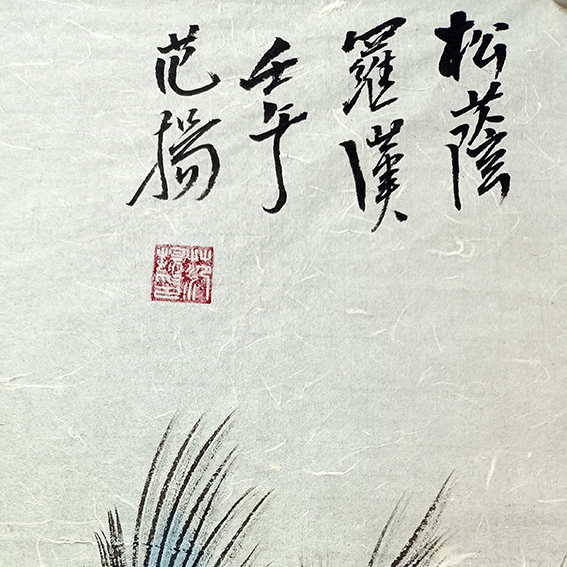 松蔭
羅漢
壬午
范揚